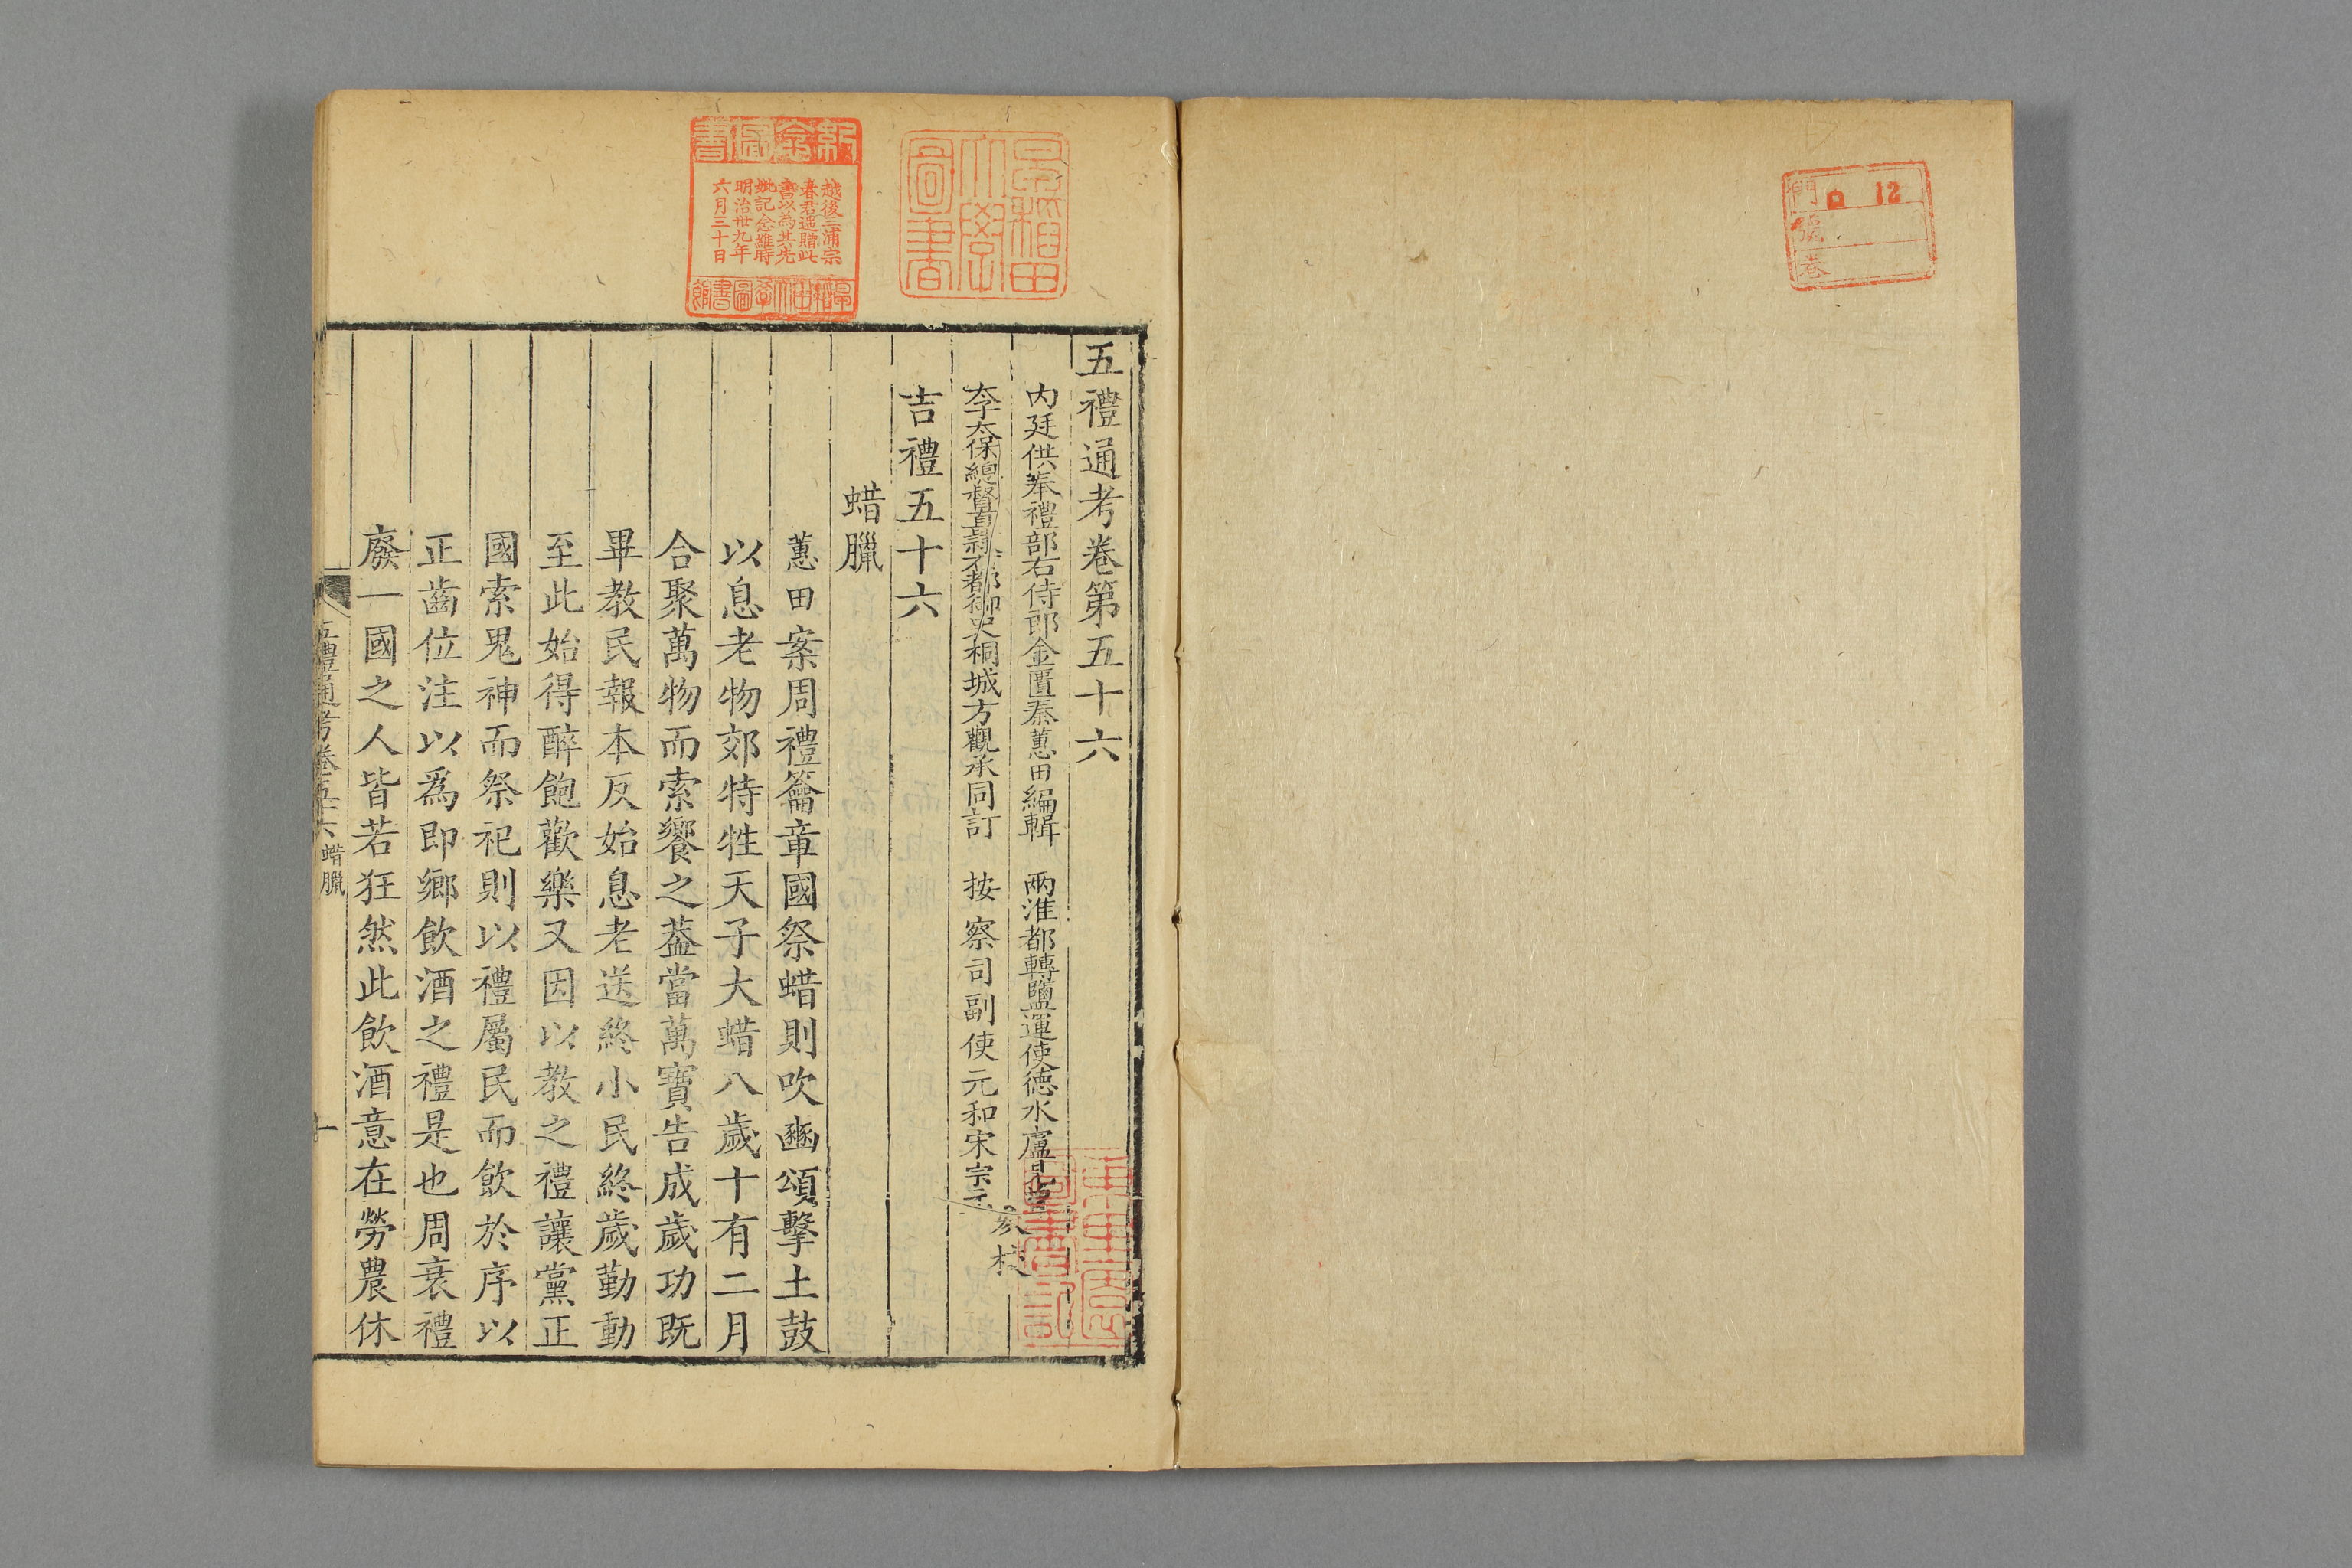 門 ロ 12
號
卷
早稲田大學圖書
紀念圖書
越後三浦宗
春君遥贈此
書以為其先
妣記念雖時
明治卅九年
六月三十日
早稲田大學圖書館
五禮通考卷第五十六
内廷供奉禮部右侍郎金匱秦蕙田編輯 兩淮都轉鹽運使德水盧見曾
太子太保總督直隸右都御史桐城方觀承同訂 按察司副使元和宋宗元
參校
吉禮五十六
蜡臘
蕙田案周禮籥章國祭蜡則吹豳頌擊土鼓
以息老物郊特牲天子大蜡八歲十有二月
合聚萬物而索饗之葢當萬寶告成歲功既
畢教民報本反始息老送終小民終歲勤動
至此始得醉飽歡樂又因以教之禮讓黨正
國索鬼神而祭祀則以禮屬民而飲於序以
正齒位注以爲即鄉飲酒之禮是也周衰禮
廢一國之人皆若狂然此飲酒意在勞農休
五禮通考卷五十六 蜡臘
一